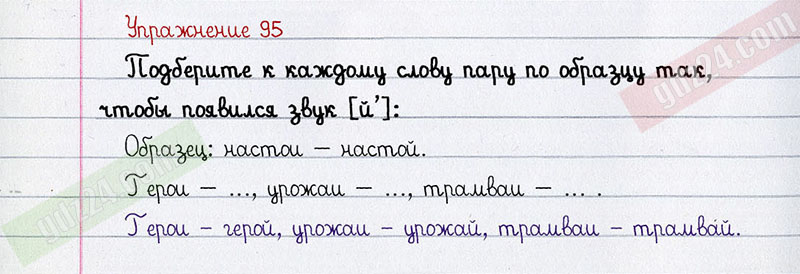 Упражнение 95
Подберите к каждому слову пару по образцу так,
чтобы появился звук [й']:
Образец: настои – настой.
Герои – ..., урожаи – ..., трамваи – ... .
Герои – герой, урожаи – урожай, трамваи – трамвáй.
gdz24.com
gdz24.com